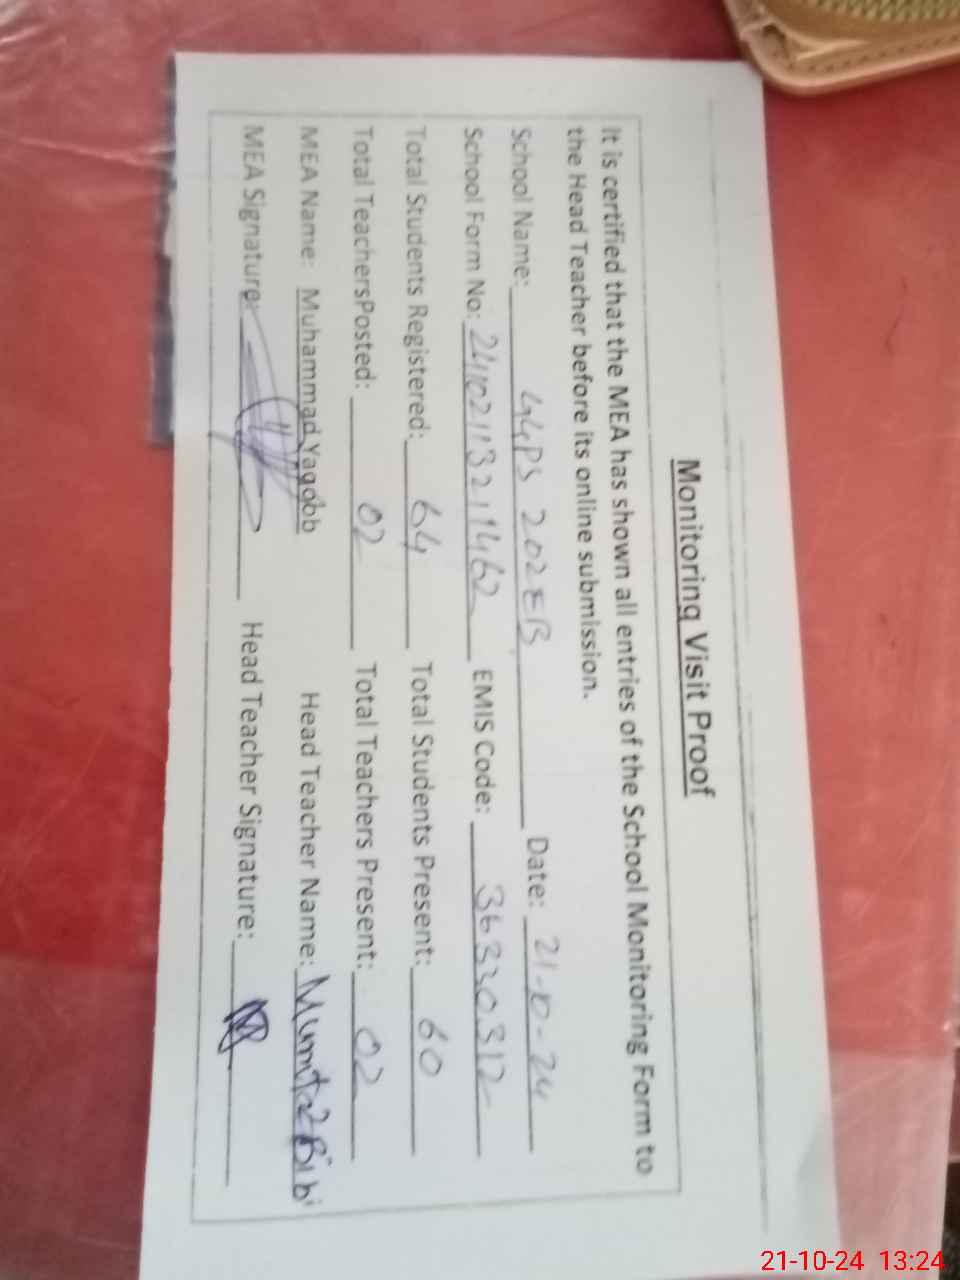 Monitoring Visit Proof
It is certified that the MEA has shown all entries of the School Monitoring Form to
the Head Teacher before its online submission.
School Name: GGPS 202EB Date: 21-10-24
School Form No: EMIS Code: 36330312
Total Students Registered: 64 Total Students Present: 60
Total TeachersPosted: 02 Total Teachers Present: 02
MEA Name: Muhammad Yaqoob Head Teacher Name: Mumtaz Bibi
MEA Signature: Head Teacher Signature:
21-10-24 13:24